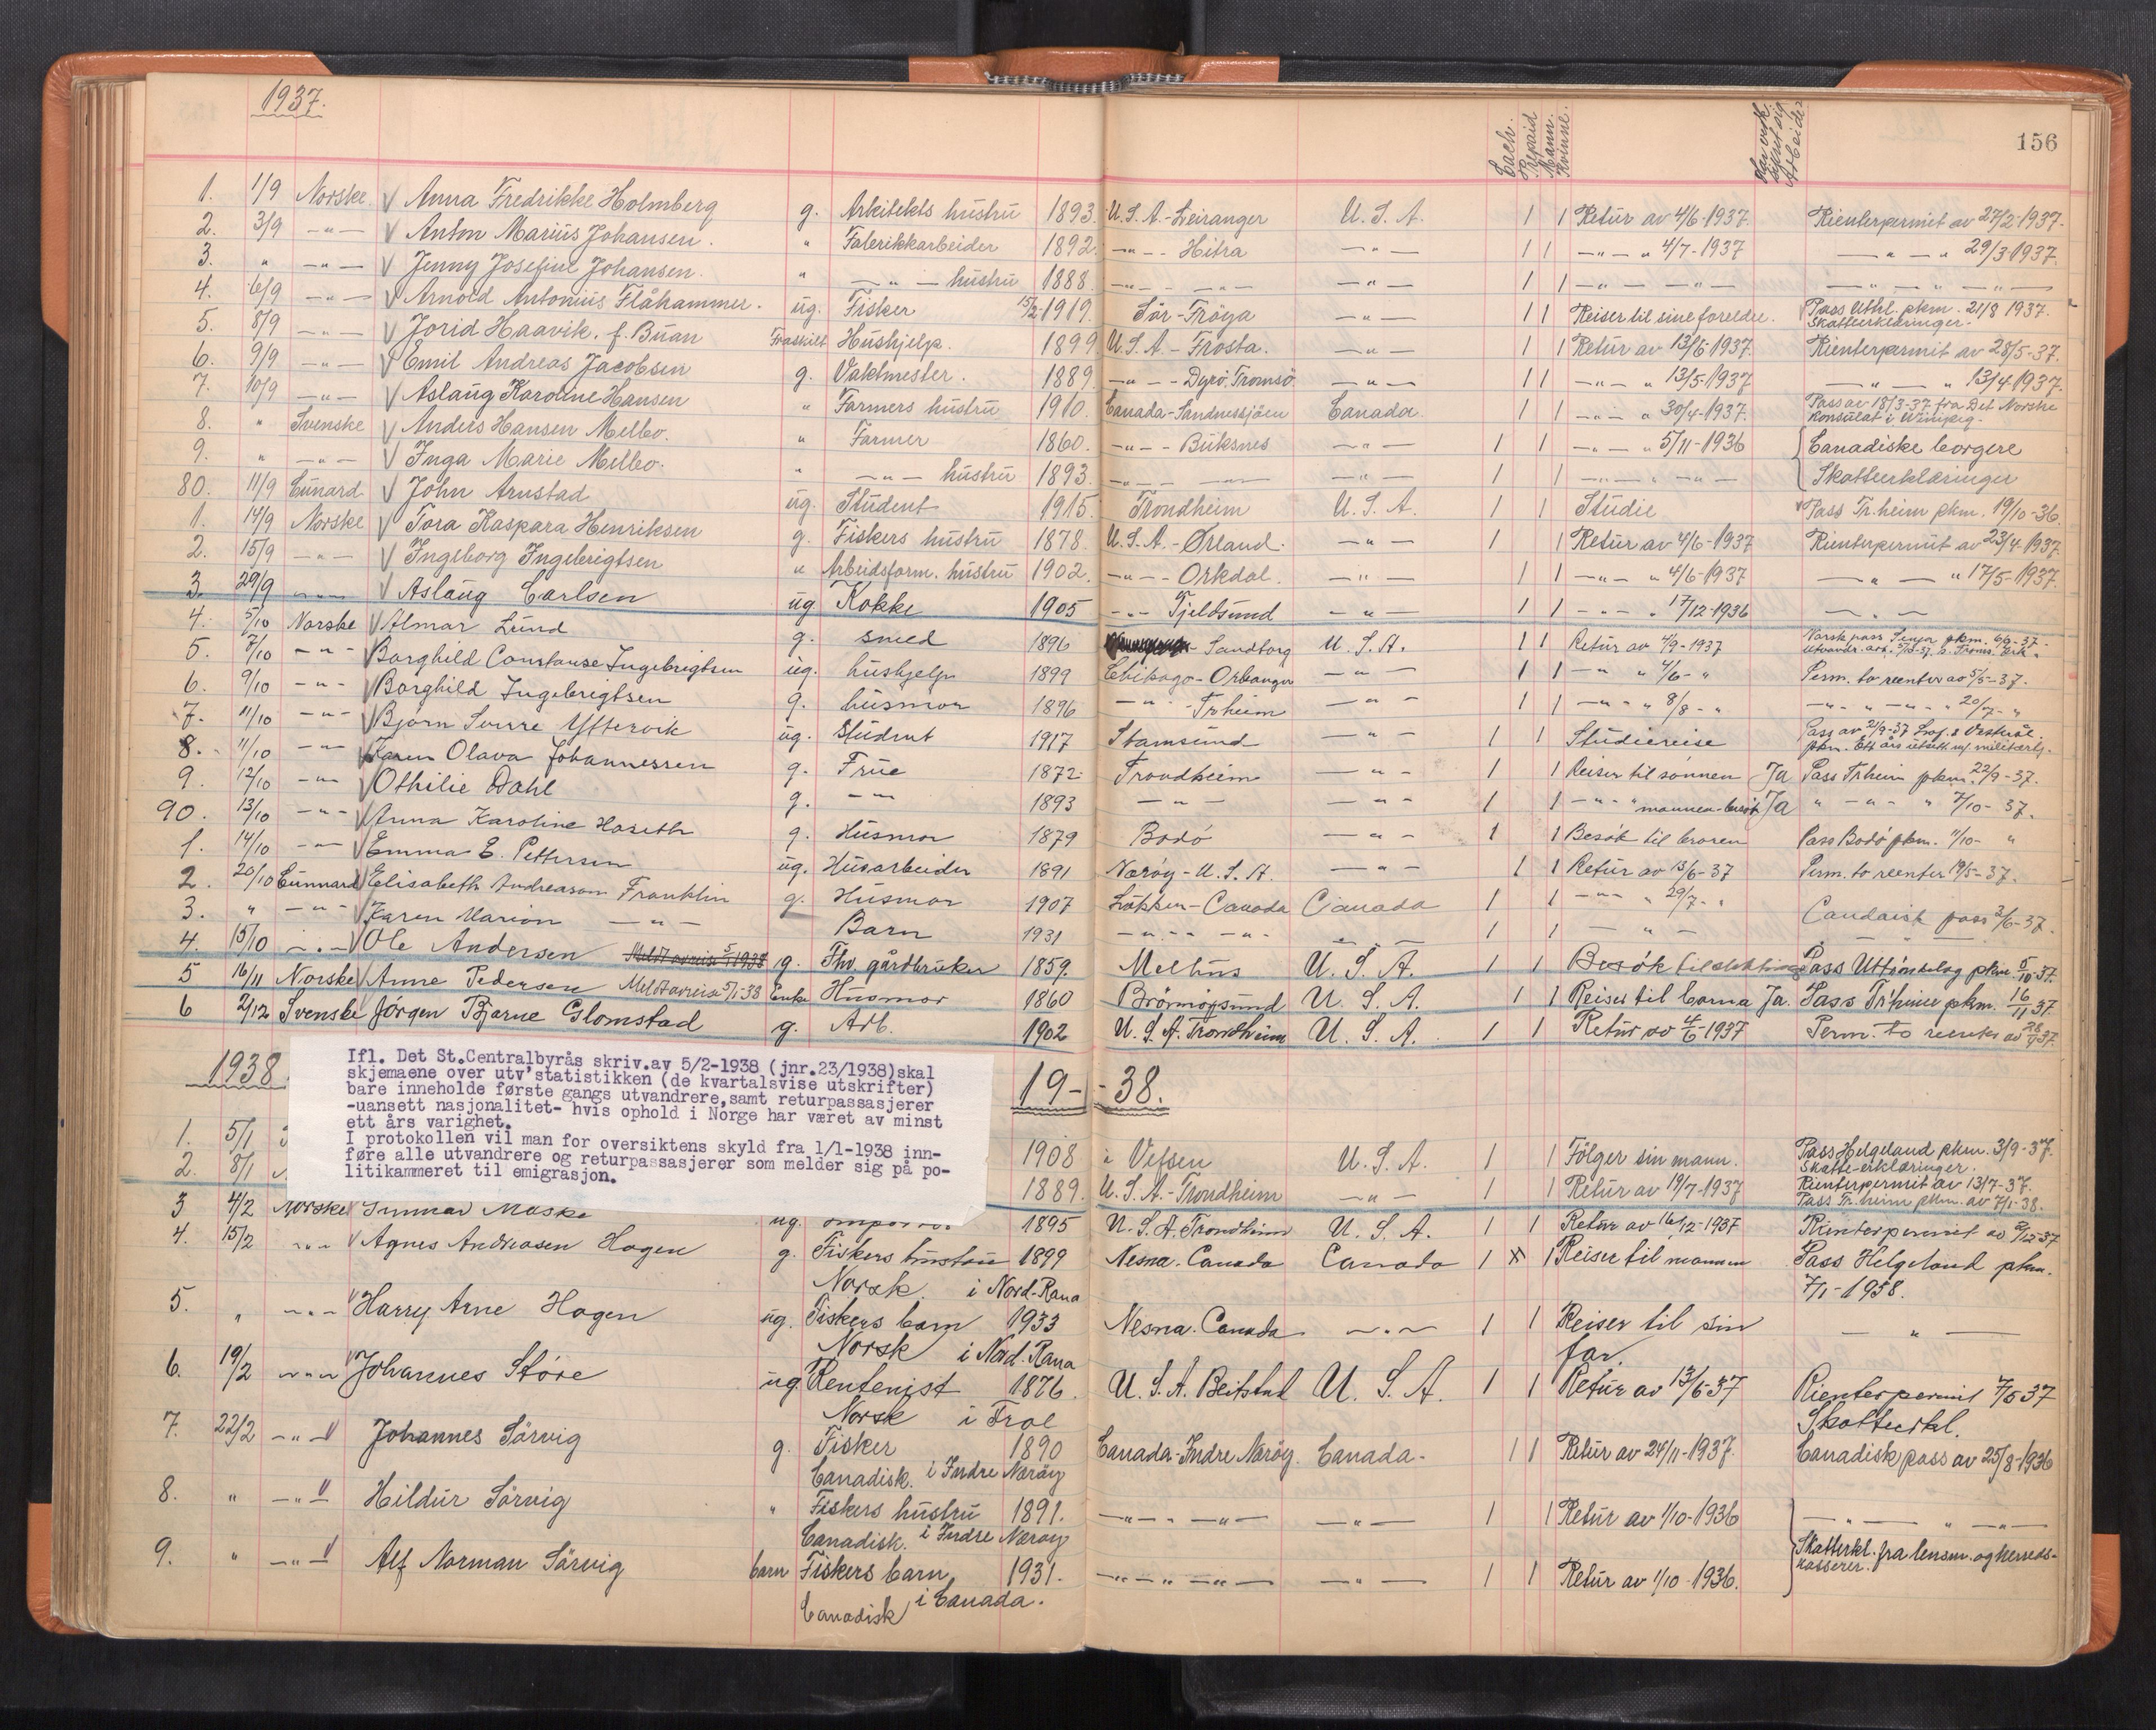 1937.
156
Cach. Prepaid Mann. Kvinne.
1. 1/9 Norske √ Anna Fredrikke Holmberg g. Arkitekts hustru 1893. U.S.A.-Leiranger U.S.A. 1 1 Retur av 4/6-1937. Rienterpermit av 27/2-1937.
2. 3/9 -"- √ Anton Marius Johansen. " Fabrikkarbeider 1892. -"- - Hitra -"- 1 1 -"- " 4/7-1937 -"- " 29/3-1937.
3. " -"- √ Jenny Josefine Johansen. " -"- hustru 1888. -"- - -"- -"- 1 1 -"- -"- -"- " -"-
4. 6/9 -"- √ Arnold Antonius Flåhammer. ug. Fisker 15/2-1919. Sör-Fröya -"- 1 1 Reiser til sine foreldre. Pass Uthl. pkm. 21/8 1937. Skatteerklæringer.
5. 8/9 -"- √ Jorid Haavik. f. Buan Fraskilt Hushjelp. 1899 U.S.A-Frosta. -"- 1 1 Retur av 13/6-1937. Rienterpermit av 28/5-37.
6. 9/9 -"- √ Emil Andreas Jacobsen g. Vaktmester. 1889. -"- - Dyrö. Tromsö -"- 1 1 -"- " 13/5-1937 -"- " 13/4 1937.
7. 10/9 -"- √ Aslaug Karoline Hansen " Farmers hustru 1910. Canada-Sandnessjöen Canada 1 1 -"- " 30/4-1937. Pass av 18/3-37 fra Det Norske Konsulat i Winipeg.
8. " Svenske √ Anders Hansen Melbo. " Farmer 1860. -"- - Buksnes -"- 1 1 -"- " 5/11-1936 Canadiske borgere
9. " -"- √ Inga Marie Melbo. " -"- hustru 1893. -"- -"- -"- 1 1 -"- " -"- Skatteerklæringer
80. 11/9 Cunard √ John Arnstad ug. Student 1915. Trondheim U.S.A. 1 1 Studie Pass Tr.heim pkm. 19/10-36.
1. 14/9 Norske √ Tora Kaspara Henriksen g. Fiskers hustru 1878. U.S.A.-Ørland. -"- 1 1 Retur av 4/6-1937 Rienterpermit av 23/4-1937.
2. 15/9 -"- √ Ingeborg Ingebrigtsen " Arbeidsform. hustru 1902. -"- - Orkdal. -"- 1 1 -"- " 4/6-1937 -"- " 17/5-1937.
3. 29/9 -"- √ Aslaug Carlsen ug Kokke 1905 -"- Tjeldsund -"- 1 1 -"- " 17/12-1936 -"-
4. 5/10 Norske √ Almar Lund g. smed 1896 - Sandtorg U.S.A. 1 1 Retur av 4/9-1937 Norsk pass Senja pkm. 6/9-37
5. 7/10 -"- √ Borghild Constanse Ingebrigtsen ug. hushjelp 1899 Chikago-Orkanger -"- 1 1 -"- " 4/6-" Perm. to reenter av 5/5-37.
6. 9/10 -"- √ Borghild Ingebrigtsen g. husmor 1896 -"- -Trheim -"- 1 1 -"- " 8/8-" -"- " -"- " 20/7-"
7. 11/10 -"- √ Bjørn Sverre Yttervik ug. Student 1917 Stamsund -"- 1 1 Studiereise Pass av 21/9-37 Lof. & Vesterål. pkm. Ett års utsett m/ militærtj.
8. 11/10 -"- √ Karen Olava Johannessen g. Frue 1872 Trondheim -"- 1 1 Reiser til sønnen Ja Pass Trheim pkm. 22/9-37.
9. 12/10 -"- √ Othilie Dahl g. -"- 1893 -"- -"- 1 1 -"- " mannen-besøk Ja " -"- " 7/10-37.
90. 13/10 -"- √ Anna Karoline Haseth g. Husmor 1879 Bodö -"- 1 1 Besøk til broren Pass Bodö pkm. 11/10- "
1. 14/10 -"- √ Emma E. Pettersen ug. Husarbeider 1891 Nærøy-U.S.A. -"- 1 1 Retur av 13/6-37 Perm. to reenter 19/5-37.
2. 20/10 Cunnard √ Elisabeth Andreason Franklin g. Husmor 1907 Løkken-Canada Canada 1 1 -"- " 29/7-" Candaisk pass 2/6-37.
3. " -"- √ Karen Marion -"- Barn 1931 -"- -"- -"- 1 1 -"-
4. 15/10 -"- √ Ole Andersen Meldt avreise 5/1 1938 g. Fhv. gårdbruker 1859. Melhus U.S.A. 1 1 Besøk til Pass Uttröndelag pkm. 5/10 37.
5 16/11 Norske √ Anne Pedersen Meldt avreise 5/1-38 Enke Husmor 1860 Brönnöysund U.S.A. 1 1 Reiser til barna Ja. Pass Tr'heim pkm. 16/11 37.
6 2/12 Svenske Jörgen Bjarne Glomstad g. Arb. 1902 U.S.A. Trondheim U.S.A. 1 1 Retur av 4/6-1937 Perm. to reenter av 28/4 37.
1938. 19- -38.
Ifl. Det St.Centralbyrås skriv.av 5/2-1938 (jnr.23/1938)skal
skjemaene over utv'statistikken (de kvartalsvise utskrifter)
bare inneholde første gangs utvandrere,samt returpassasjerer
-uansett nasjonalitet- hvis ophold i Norge har været av minst
ett års varighet.
I protokollen vil man for oversiktens skyld fra 1/1-1938 inn-
føre alle utvandrere og returpassasjerer som melder sig på po-
litikammeret til emigrasjon.
1. 5/1 1908 i Vefsen U.S.A. 1 1 Fölger sin mann. Pass Helgeland pkm. 3/9-37. Skatte-erklæringer.
2. 8/1 1889. U.S.A.-Trondheim -"- 1 1 Retur av 19/7-1937 Rienterpermit av 13/7-37. Pass Tr.heim pkm. av 7/1-38.
3 4/2 Norske Gunnar Maske ug. 1895 U.S.A. Trondheim U.S.A. 1 1 Retur av 16/12-1937 Rienterpermit av 2/12-37
4. 15/2 -"- √ Agnes Andreasen Hagen g. Fiskers hustru 1899 Nesna. Canada Canada 1 X 1 Reiser til mannen Pass Helgeland pkm.
Norsk. i Nord-Rana 7/1-1938.
5. " -"- √ Harry Arne Hagen ug. Fiskers barn 1933 Nesna. Canada -"- 1 1 Reiser til sin -"-
Norsk i Nord. Rana far.
6. 19/2 -"- √ Johannes Støre ug. Rentenist 1876. U.S.A. Beitstad U.S.A. 1 1 Retur av 13/6-37 Rienterpermit 7/5 37
Norsk i Skatteerkl.
7. 22/2 -"- √ Johannes Sörvig g. Fisker 1890 Canada-Indre Næröy. Canada. 1 1 Retur av 24/11-1937. Canadisk pass av 25/8-1936
Canadisk. i Indre Næröy
8. " -"- √ Hildur Sörvig " Fiskers hustru 1891. -"- - -"- -"- 1 1 Retur av 1/10-1936 -"- " -"-
Canadisk. i Indre Næröy Skatterkl. fra lensm. og herreds-
9. " -"- √ Alf Norman Sörvig barn Fiskers barn 1931. -"- " -"- -"- 1 1 Retur av 1/10-1936. kasserer.
Canadisk i Canada.